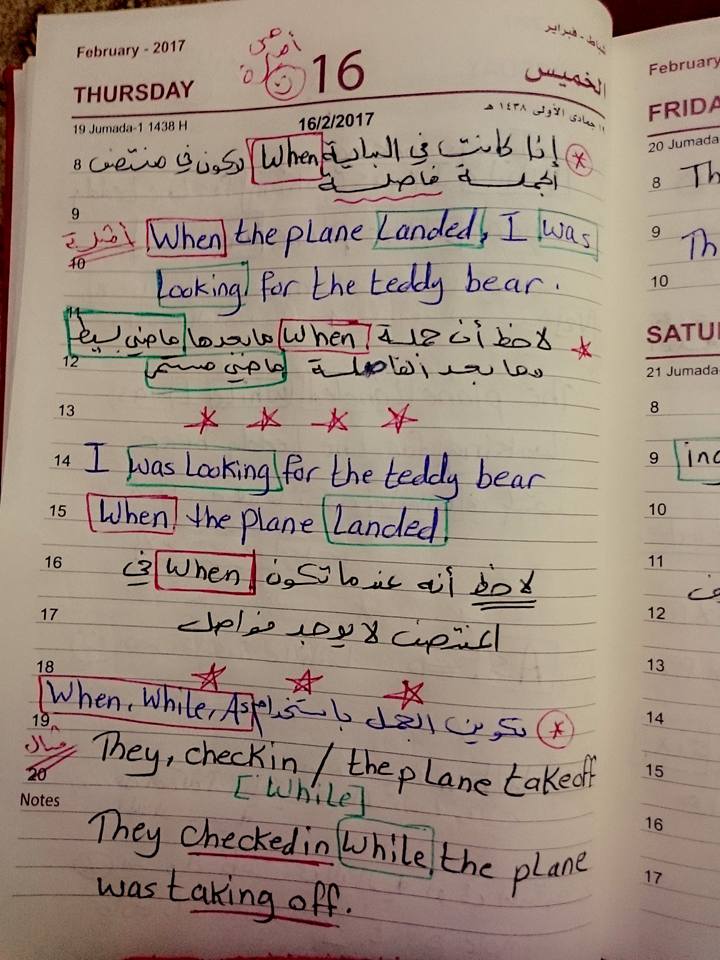 February - 2017
شباط - فبراير
THURSDAY 16 الخميس
19 Jumada-1 1438 H
16/2/2017
١٩ جمادى الأولى ١٤٣٨ هـ
8 إذا كانت في البداية When يكون في منتصف
الجملة فاصلة
9
أمثلة When the plane Landed, I was
10
Looking for the teddy bear.
11
لاحظ أن جملة When ما بعدها ماضي بسيط
12 وما بعد الفاصلة ماضي مستمر
13
14 I was Looking for the teddy bear
15 When the plane Landed
16 لاحظ أنه عندما تكون When في
17 المنتصف لا يوجد فواصل
18
تكوين الجمل باستخدام When, While, As
19
مثال They, checkin / the plane takeoff
20
[While]
Notes
They checked in while the plane
was taking off.
February
FRIDA
20 Jumada
8 Th
9 Th
10
SATU
21 Jumada
8
9 inc
10
11
12
13
14
15
16
17